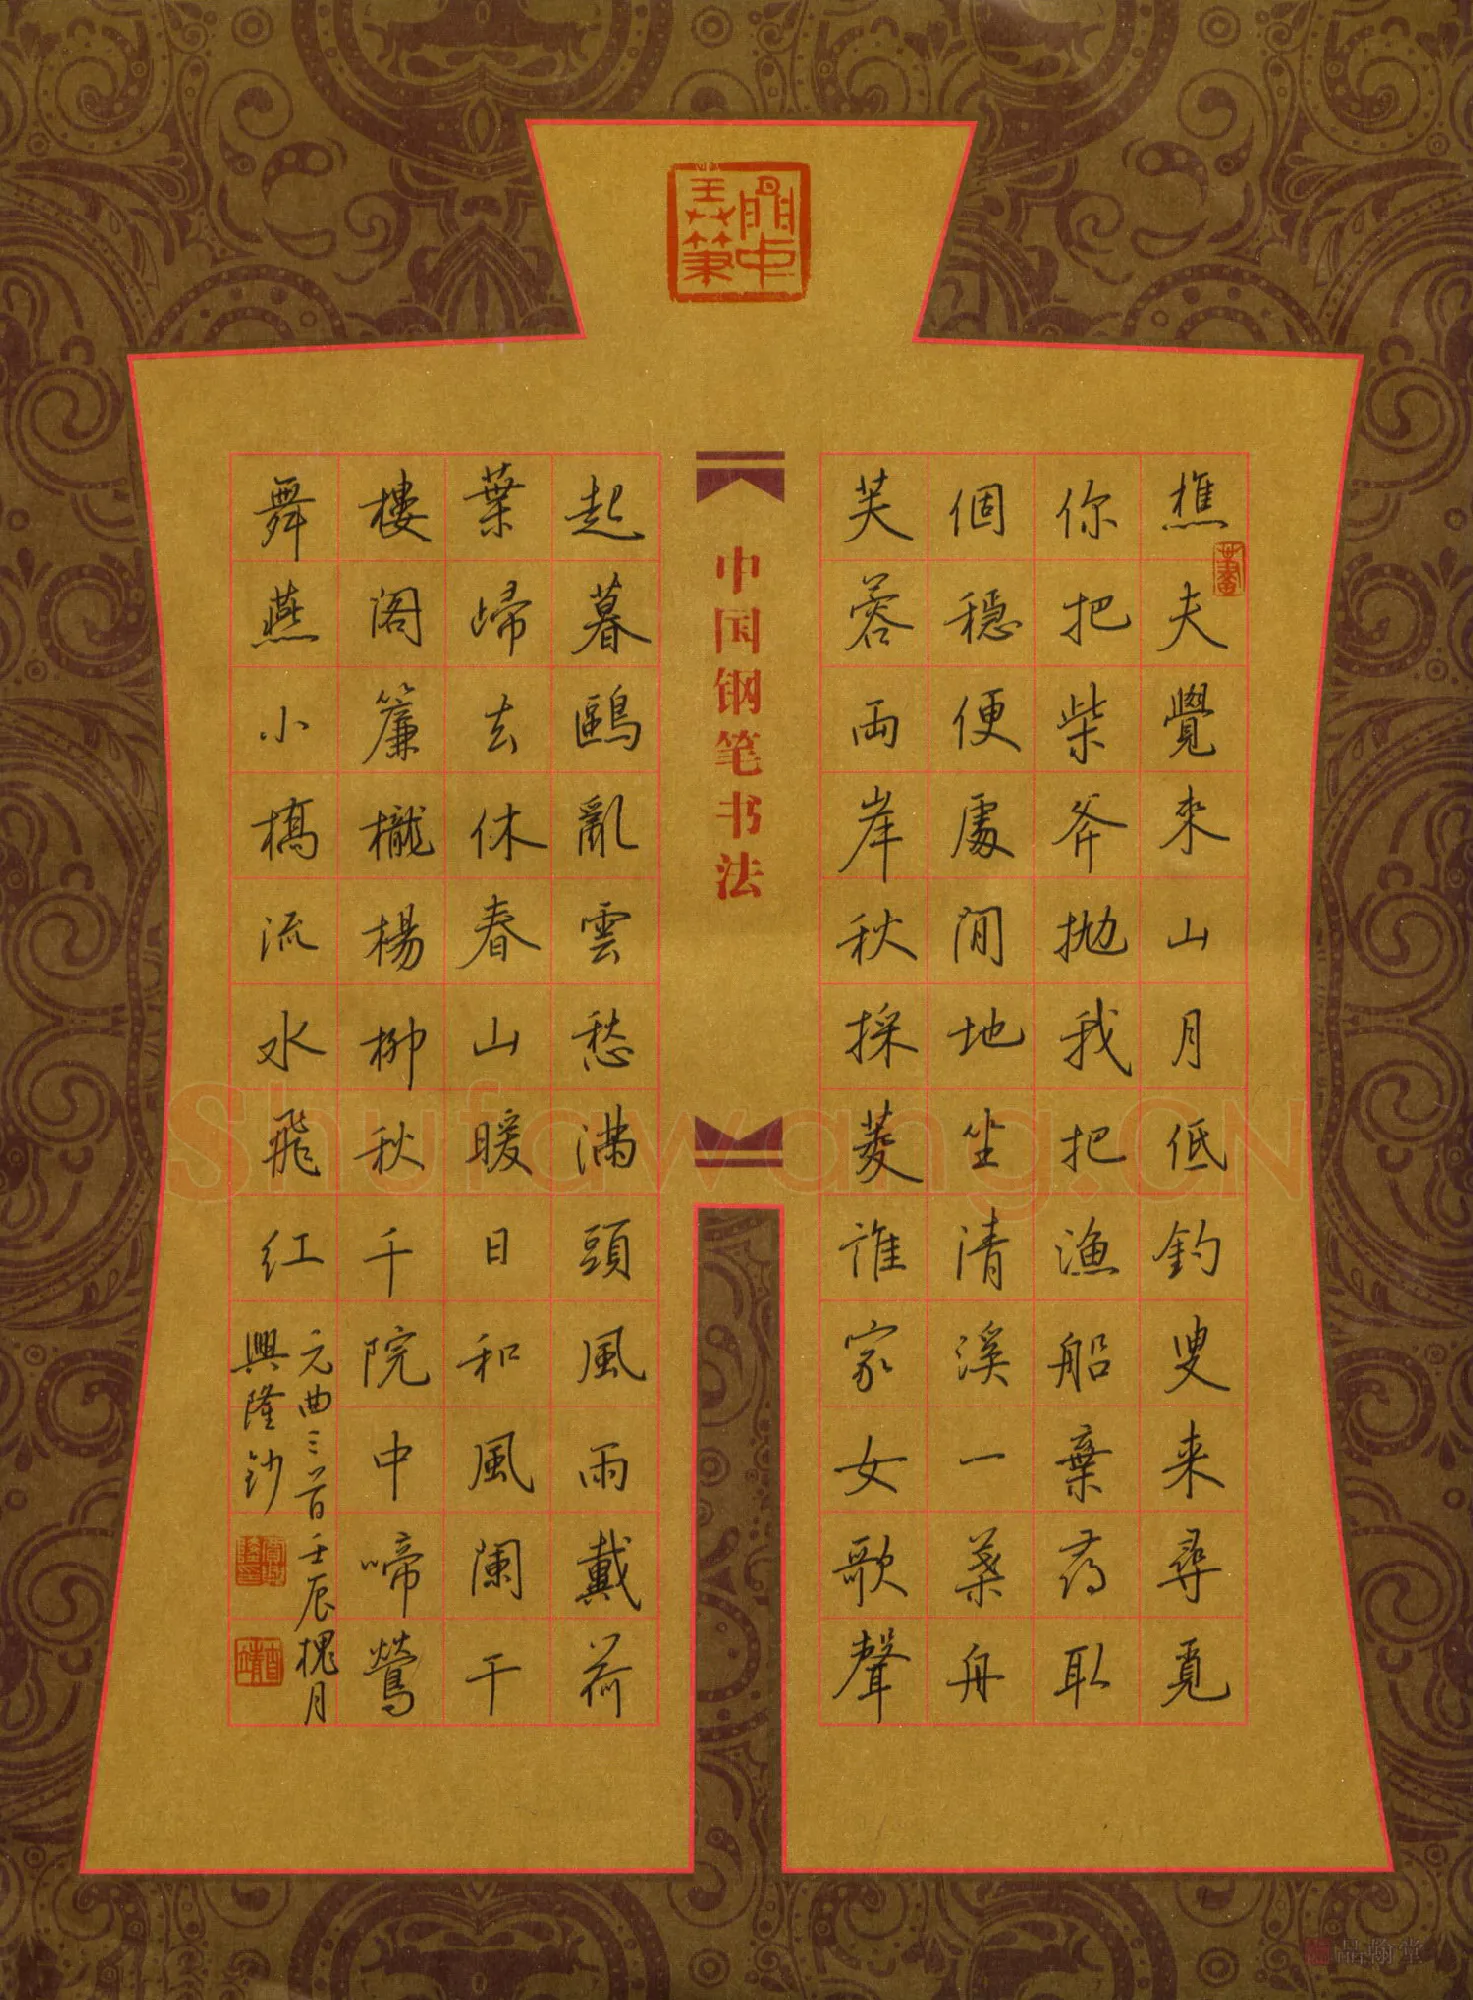 樵夫覺来山月低釣叟来尋覓
你把柴斧抛我把漁船棄尋取
個穩便處閒地坐清溪一葉舟
芙蓉兩岸秋採菱誰家女歌聲
中国钢笔书法
起暮鷗亂雲愁滿頭風雨戴荷
葉歸去休春山暖日和風闌干
樓閣簾櫳楊柳秋千院中啼鶯
舞燕小橋流水飛红
元曲三首壬辰槐月
興隆鈔
Shufawang.CN
品翰堂